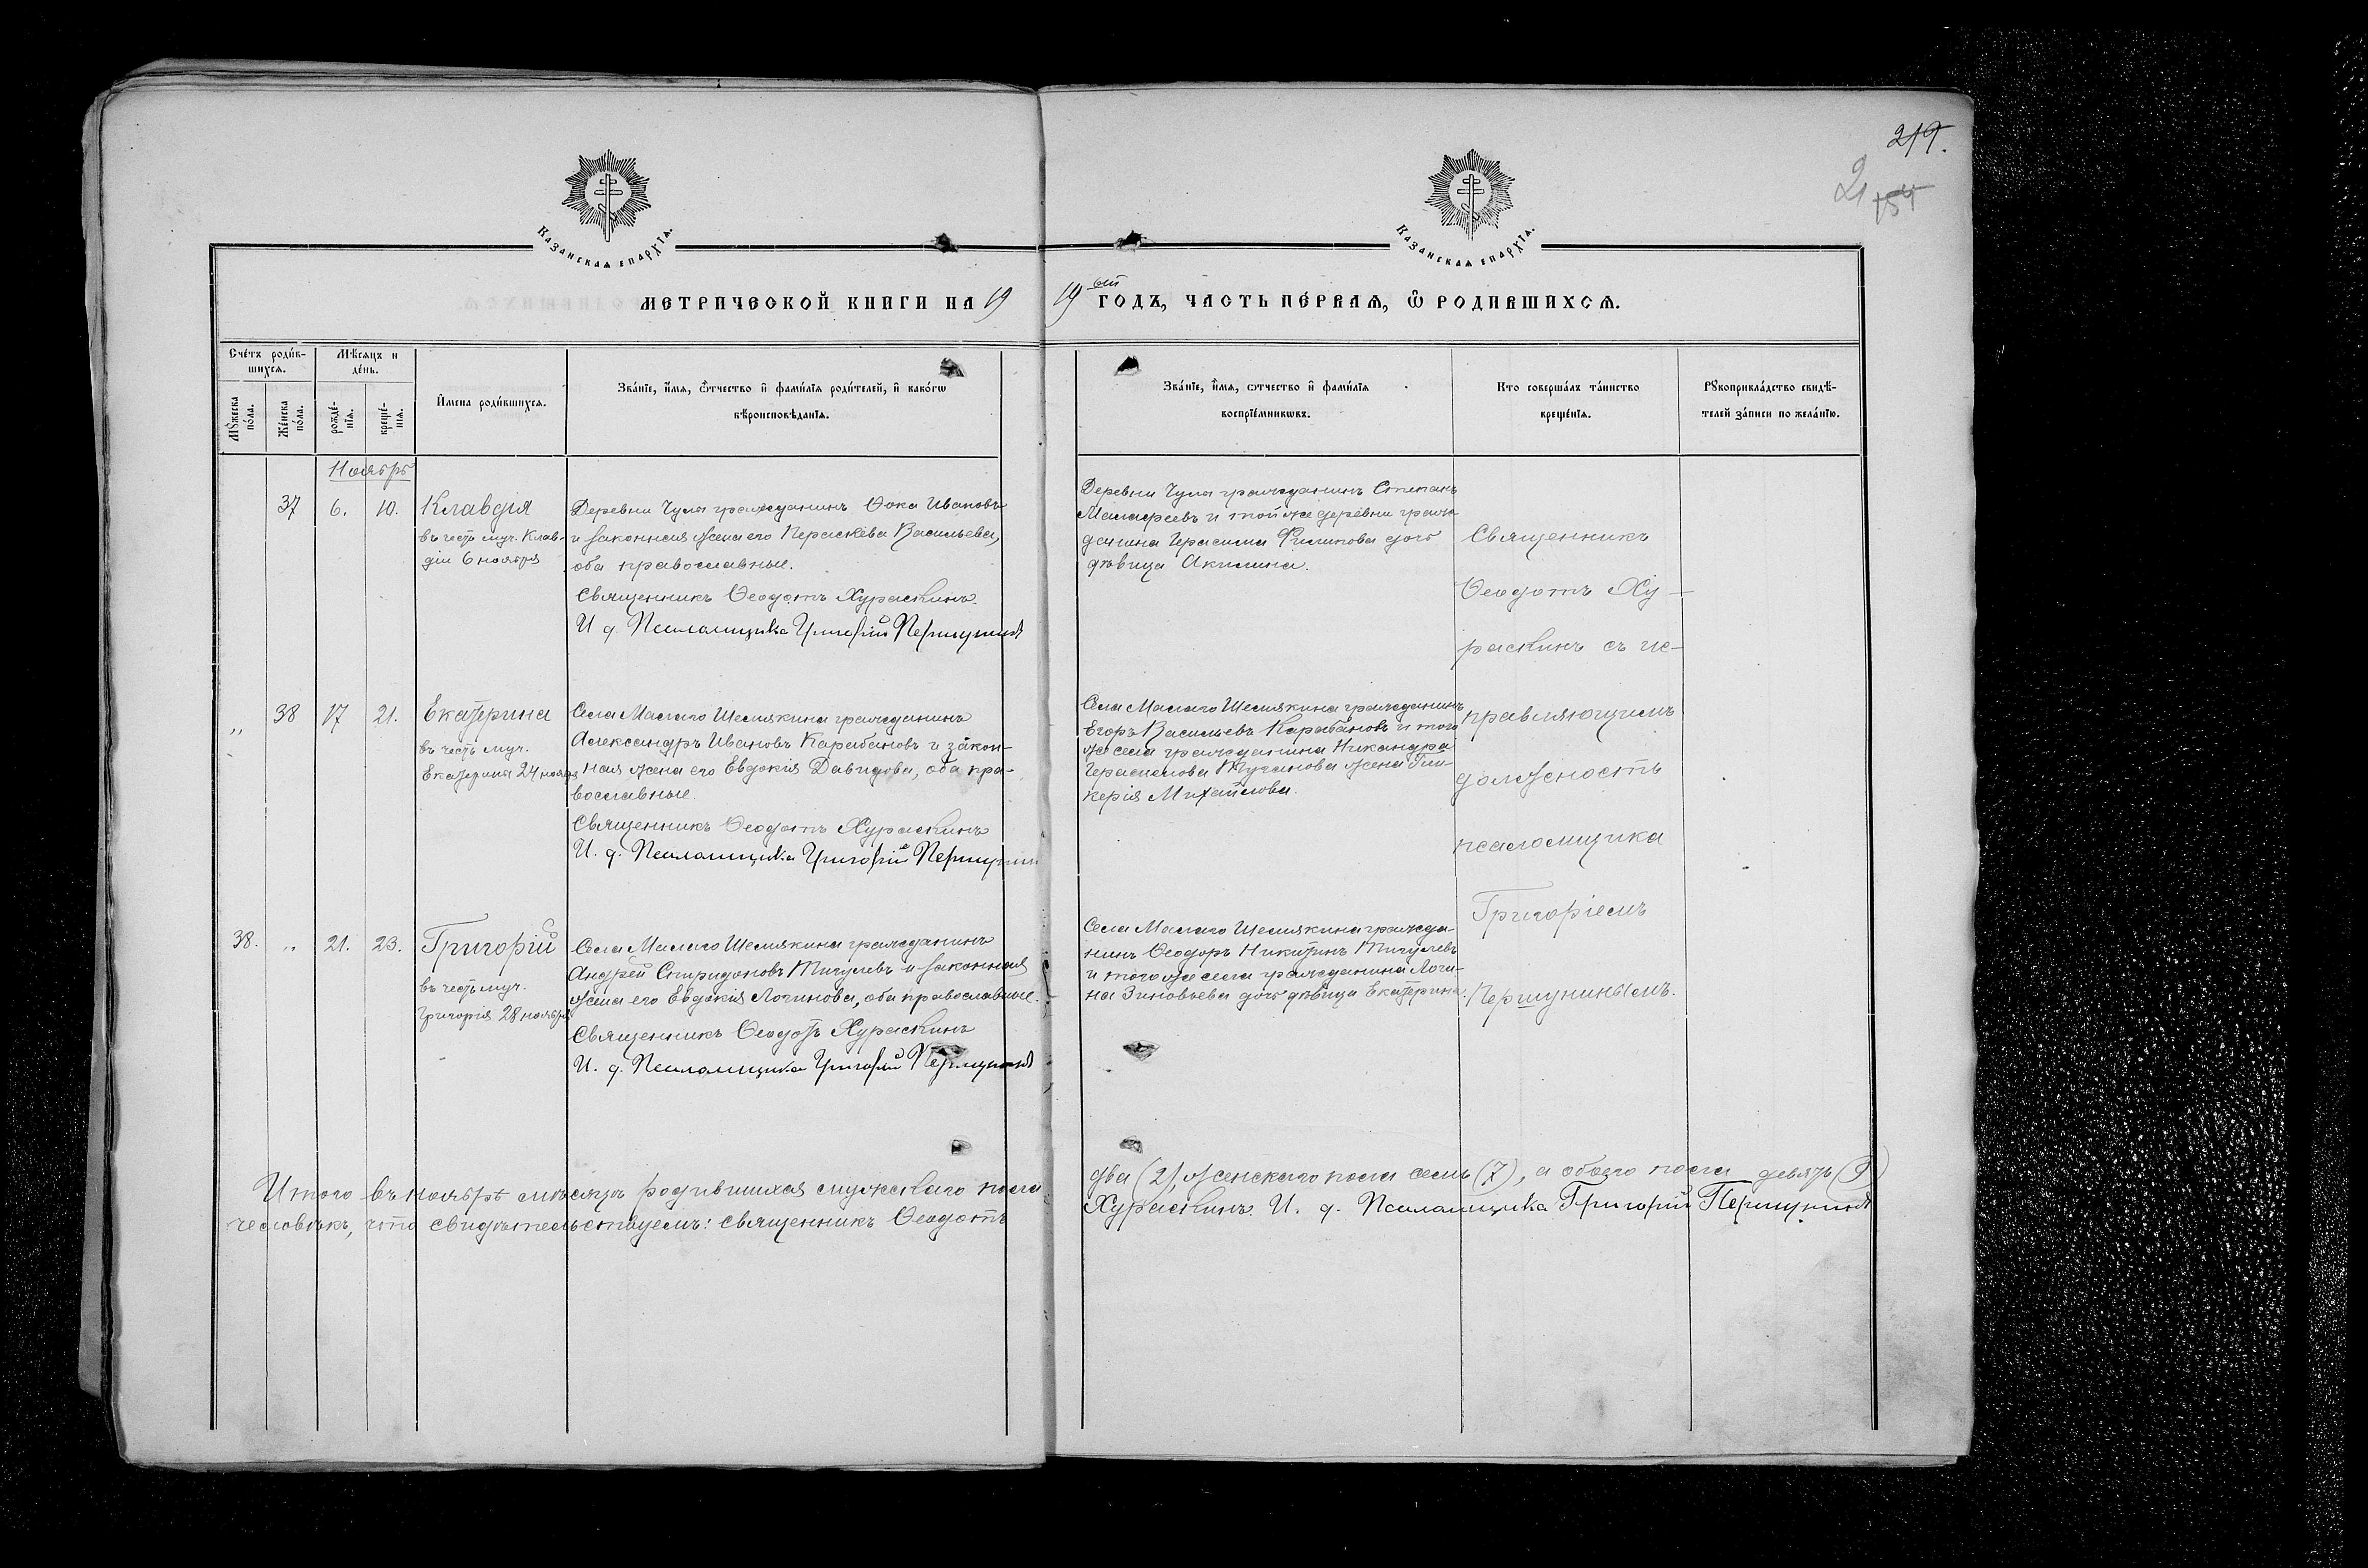 219.
21 154
Казанская епархїѧ.
Казанская епархїѧ.
МЕТРИЧЕСКОЙ КНИГИ НА 19
19 ый ГОДЪ, ЧАСТЬ ПЕ́РВАѦ, Ѿ РОДИВШИХСѦ.
Сче́тъ роди́в-
шихсѧ.
Мѣ́сѧцъ и
де́нь.
Мꙋ́жеска
по́ла.
Же́нска
по́ла.
рожде́-
нїѧ.
креще́-
нїѧ.
И҆мена роди́вшихсѧ.
Зва́нїе, и҆́мѧ, ѻ҆́тчество и҆ фами́лїѧ роди́телей, и҆ како́гѡ
вѣроисповѣ́данїѧ.
Зва́нїе, и҆́мѧ, ѻтчество и҆ фами́лїѧ
воспрїе́мникѡвъ.
Кто соверша́лъ та́инство
креще́нїѧ.
Рꙋкоприкла́дство свидѣ́-
телей за́писи по жела́нїю.
Ноябрь
37 6. 10. Клавдія
въ честь муч. Клав-
діи 6 ноября
Деревни Чула гражданинъ Ѳока Ивановъ
и законная жена его Параскева Васильева,
оба православные.
Священникъ Ѳеодотъ Хураскинъ.
И. д. Псаломщика Григорій Першунинъ
Деревни Чула гражданинъ Степанъ
Малафеевъ и той же деревни граж-
данина Герасима Филипова дочь
дѣвица Акилина.
Священникъ
Ѳеодотъ Ху-
раскинъ съ ис-
правляющимъ
должность
псаломщика
Григоріемъ
Першунинымъ.
„ 38 17 21. Екатерина
въ честь муч.
Екатерины 24 ноября
Села Малаго Шемякина гражданинъ
Александръ Ивановъ Карабановъ и закон-
ная жена его Евдокія Давидова, оба пра-
вославные.
Священникъ Ѳеодотъ Хураскинъ
И. д. Псаломщика Григорій Першунин
Села Малаго Шемякина гражданинъ
Егоръ Васильевъ Карабановъ и того
же села гражданина Никандра
Герасимова Тучанова жена Гли-
керія Михайлова.
38. „ 21. 23. Григорій
въ честь муч.
Григорія 28 ноября
Села Малаго Шемякина гражданинъ
Андрей Спиридоновъ Тичулевъ и законная
жена его Евдокія Логинова, оба православные.
Священникъ Ѳеодотъ Хураскинъ
И. д. Псаломщика Григорій Першунинъ
Села Малаго Шемякина гражда-
нинъ Ѳеодоръ Никитинъ Тичулевъ
и того же села гражданина Логи-
на Зиновьева дочь дѣвица Екатерина.
Итого въ ноябрѣ мѣсяцѣ родившихся мужскаго пола
два (2), женскаго пола семь (7), а обоего пола девять (9)
человѣкъ, что свидѣтельствуемъ: священникъ Ѳеодотъ
Хураскинъ. И. д. Псаломщика Григорій Першунинъ